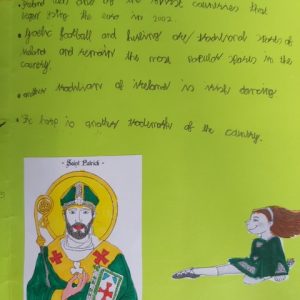 • Ireland was one of the twelve countries that
began using the euro in 2002.
• Gaelic football and hurling are traditional sports of
Ireland and remain the most popular sports in the
country.
• another of ireland is irish dancing
• The harp is another of the country.
- Saint Patrick -